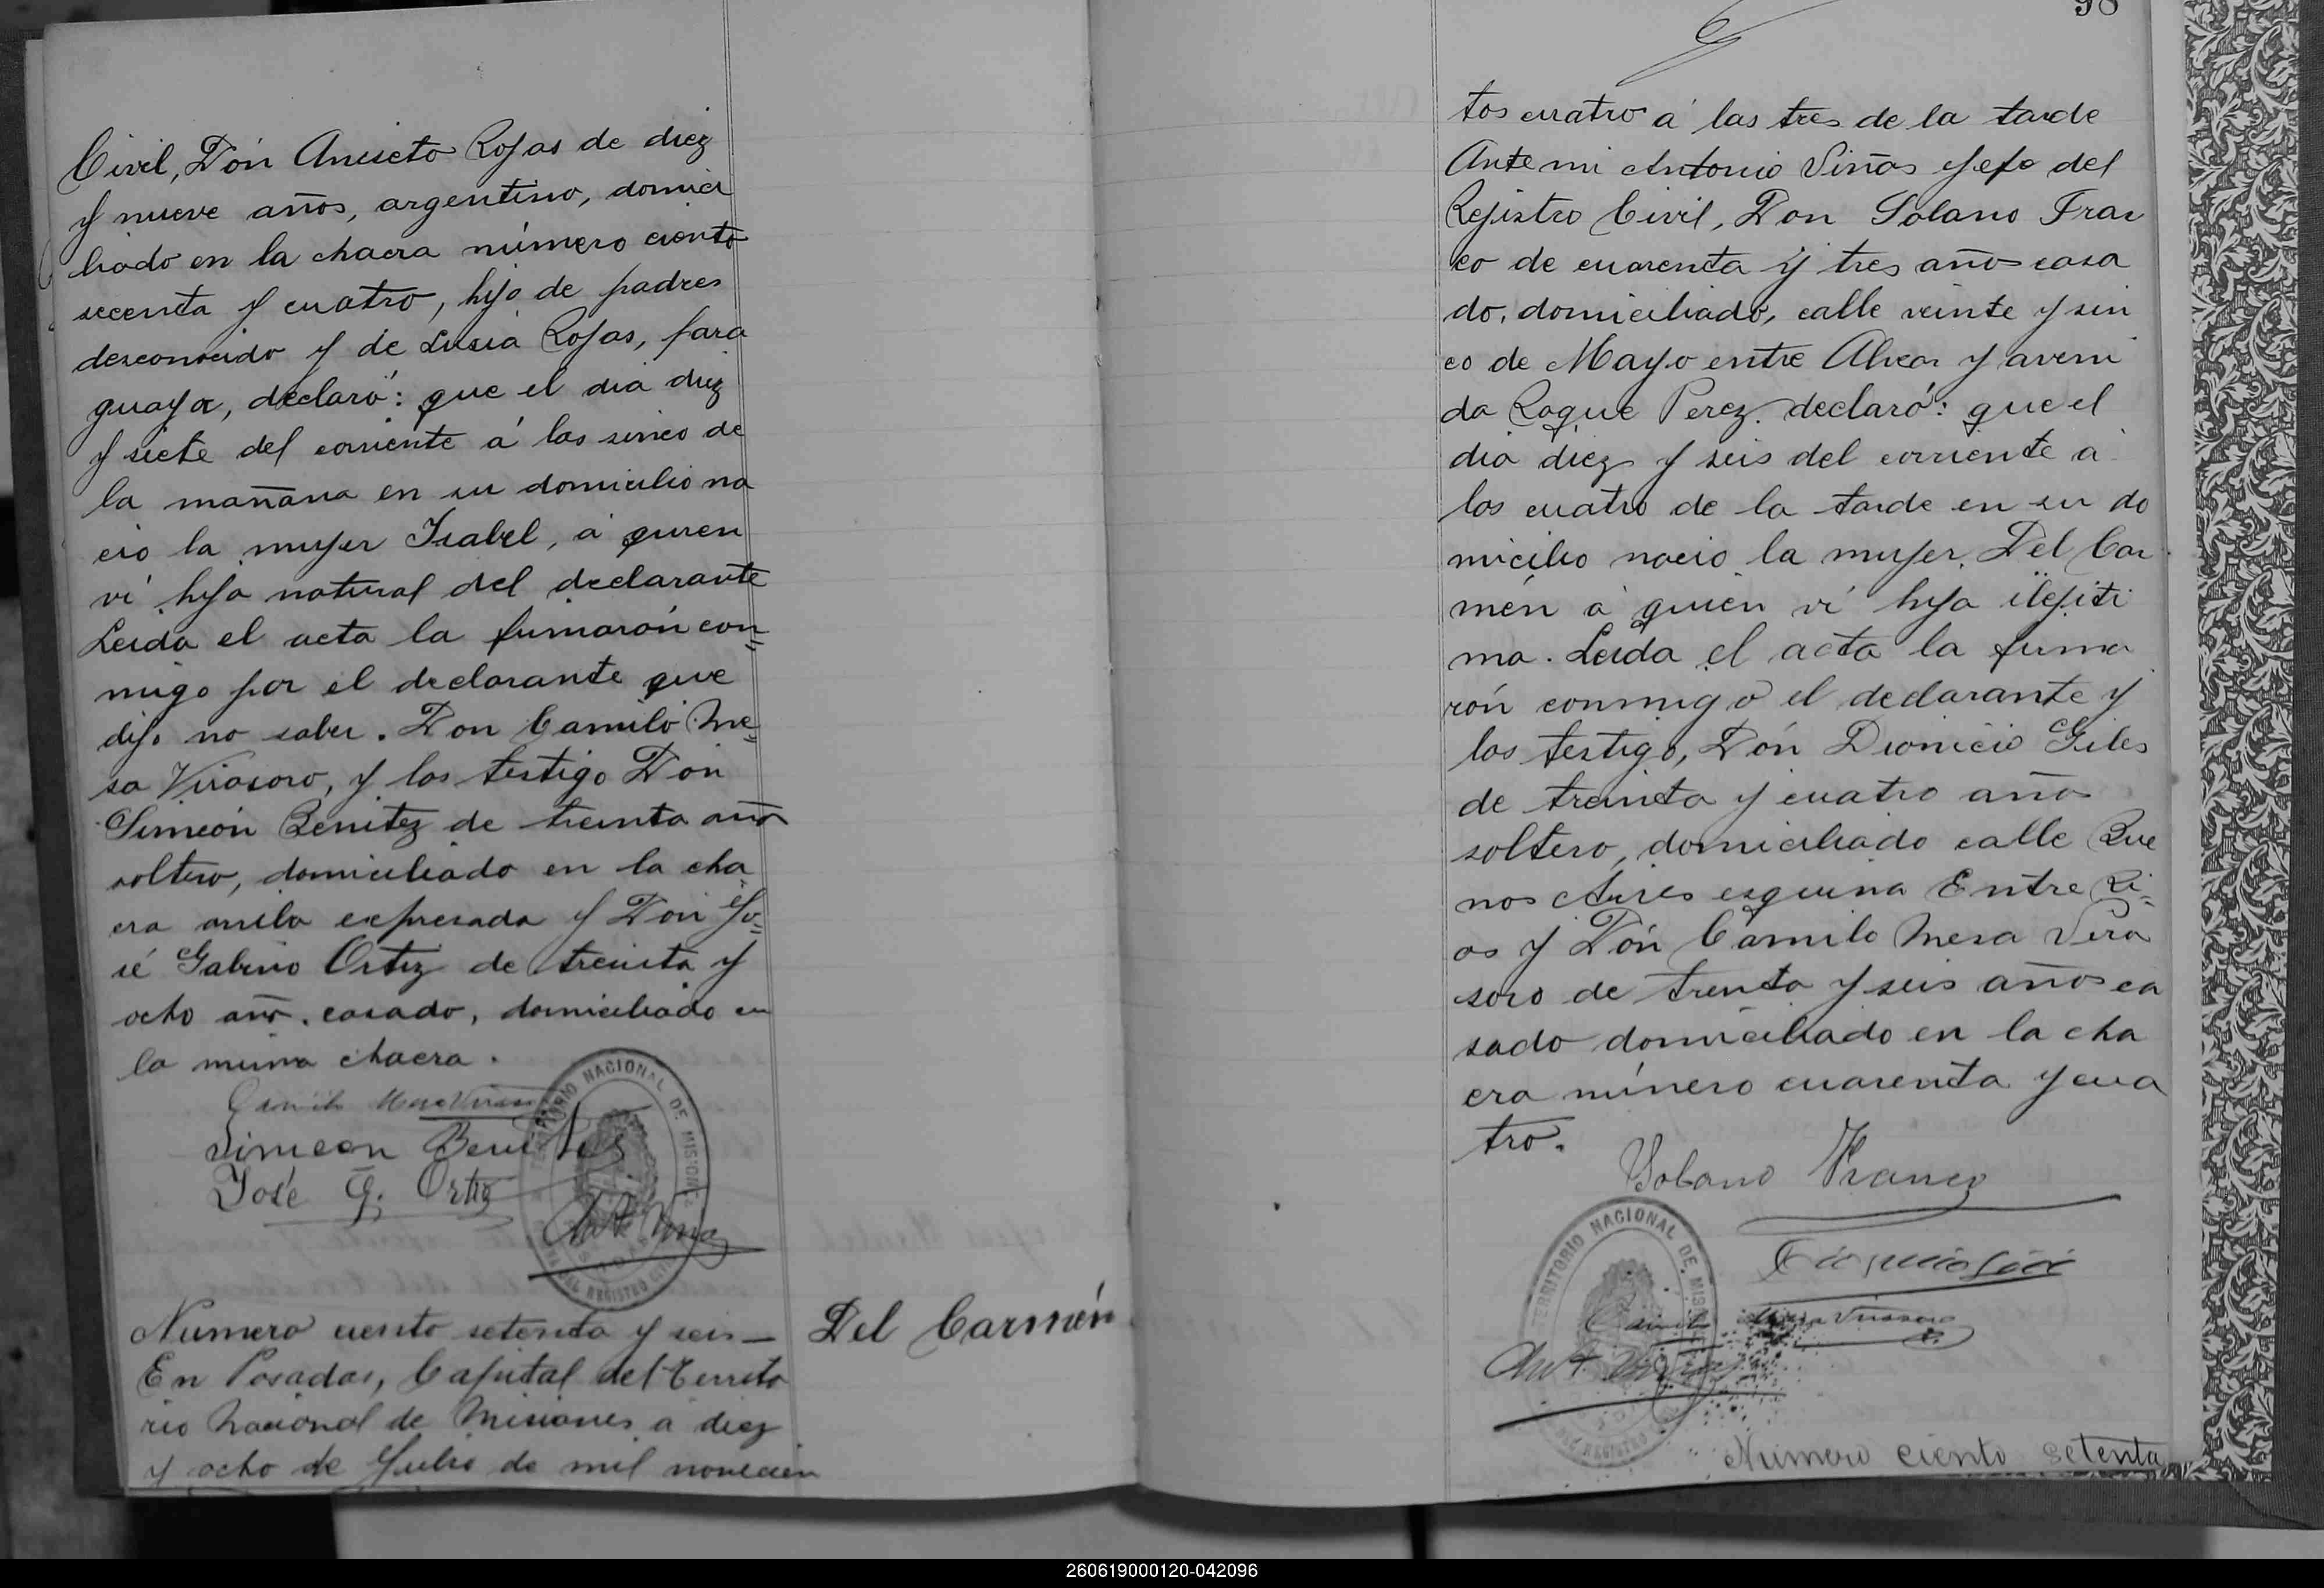 Civil, Dón Aniseto Rojas de diez
y nueve años, argentino, domici
liado en la chacra número ciento
secenta y cuatro, hijo de padres
desconocido y de Lusia Rojas, para
guaya, declaró: que el dia diez
y siete del corriente á las sinco de
la mañana en su domicilio na
cio la mujer Isabel, á quien
ví hija natural del declarante
Leida el acta la firmarón con=
migo por el declarante que
dijo no saber. Don Camilo Me=
sa Virasoro, y los testigo Don
Simeón Benitez de treinta años
soltero, domiciliado en la cha
cra arriba expresada y Don Jo=
sé Gabino Ortiz de treinta y
ocho año. casado, domiciliado en
la misma chacra.
Camilo Mesa Virasoro
Simeon Benites
José G. Ortiz
TERRITORIO NACIONAL DE MISIONES
DEL REGISTRO CIVIL
Ant Viñas
Numero ciento setenta y seis—
En Posadas, Capital del Territo
rio Nacional de Misiones á diez
y ocho de Julio de mil novecien
Del Carmén
98
tos cuatro á las tres de la tarde
Ante mi Antonio Viñas Jefe del
Rejistro Civil, Don Solano Fran
co de cuarenta y tres años casa
do, domiciliado, calle veinte y sin
co de Mayo entre Alvear y aveni
da Roque Perez. declaró: que el
dia diez y seis del corriente á
las cuatro de la tarde en su do
micilio nacio la mujer, Del Car
mén á quien ví hija ilejiti
ma. Leida el acta la firma
rón conmigo el declarante y
los testigo, Dón Dionicio Giles
de treinta y cuatro años
soltero, domiciliado calle Bue
nos Aires esquina Entre Ri=
os y Dón Camilo Mesa Vira
soro de trenta y seis años ca
sado domiciliado en la cha
cra número cuarenta y cua
tro.
Solano Franco
TERRITORIO NACIONAL DE MISIONES
Camilo Mesa Virasoro
Ant Viñas
DEL REGISTRO
Número ciento setenta